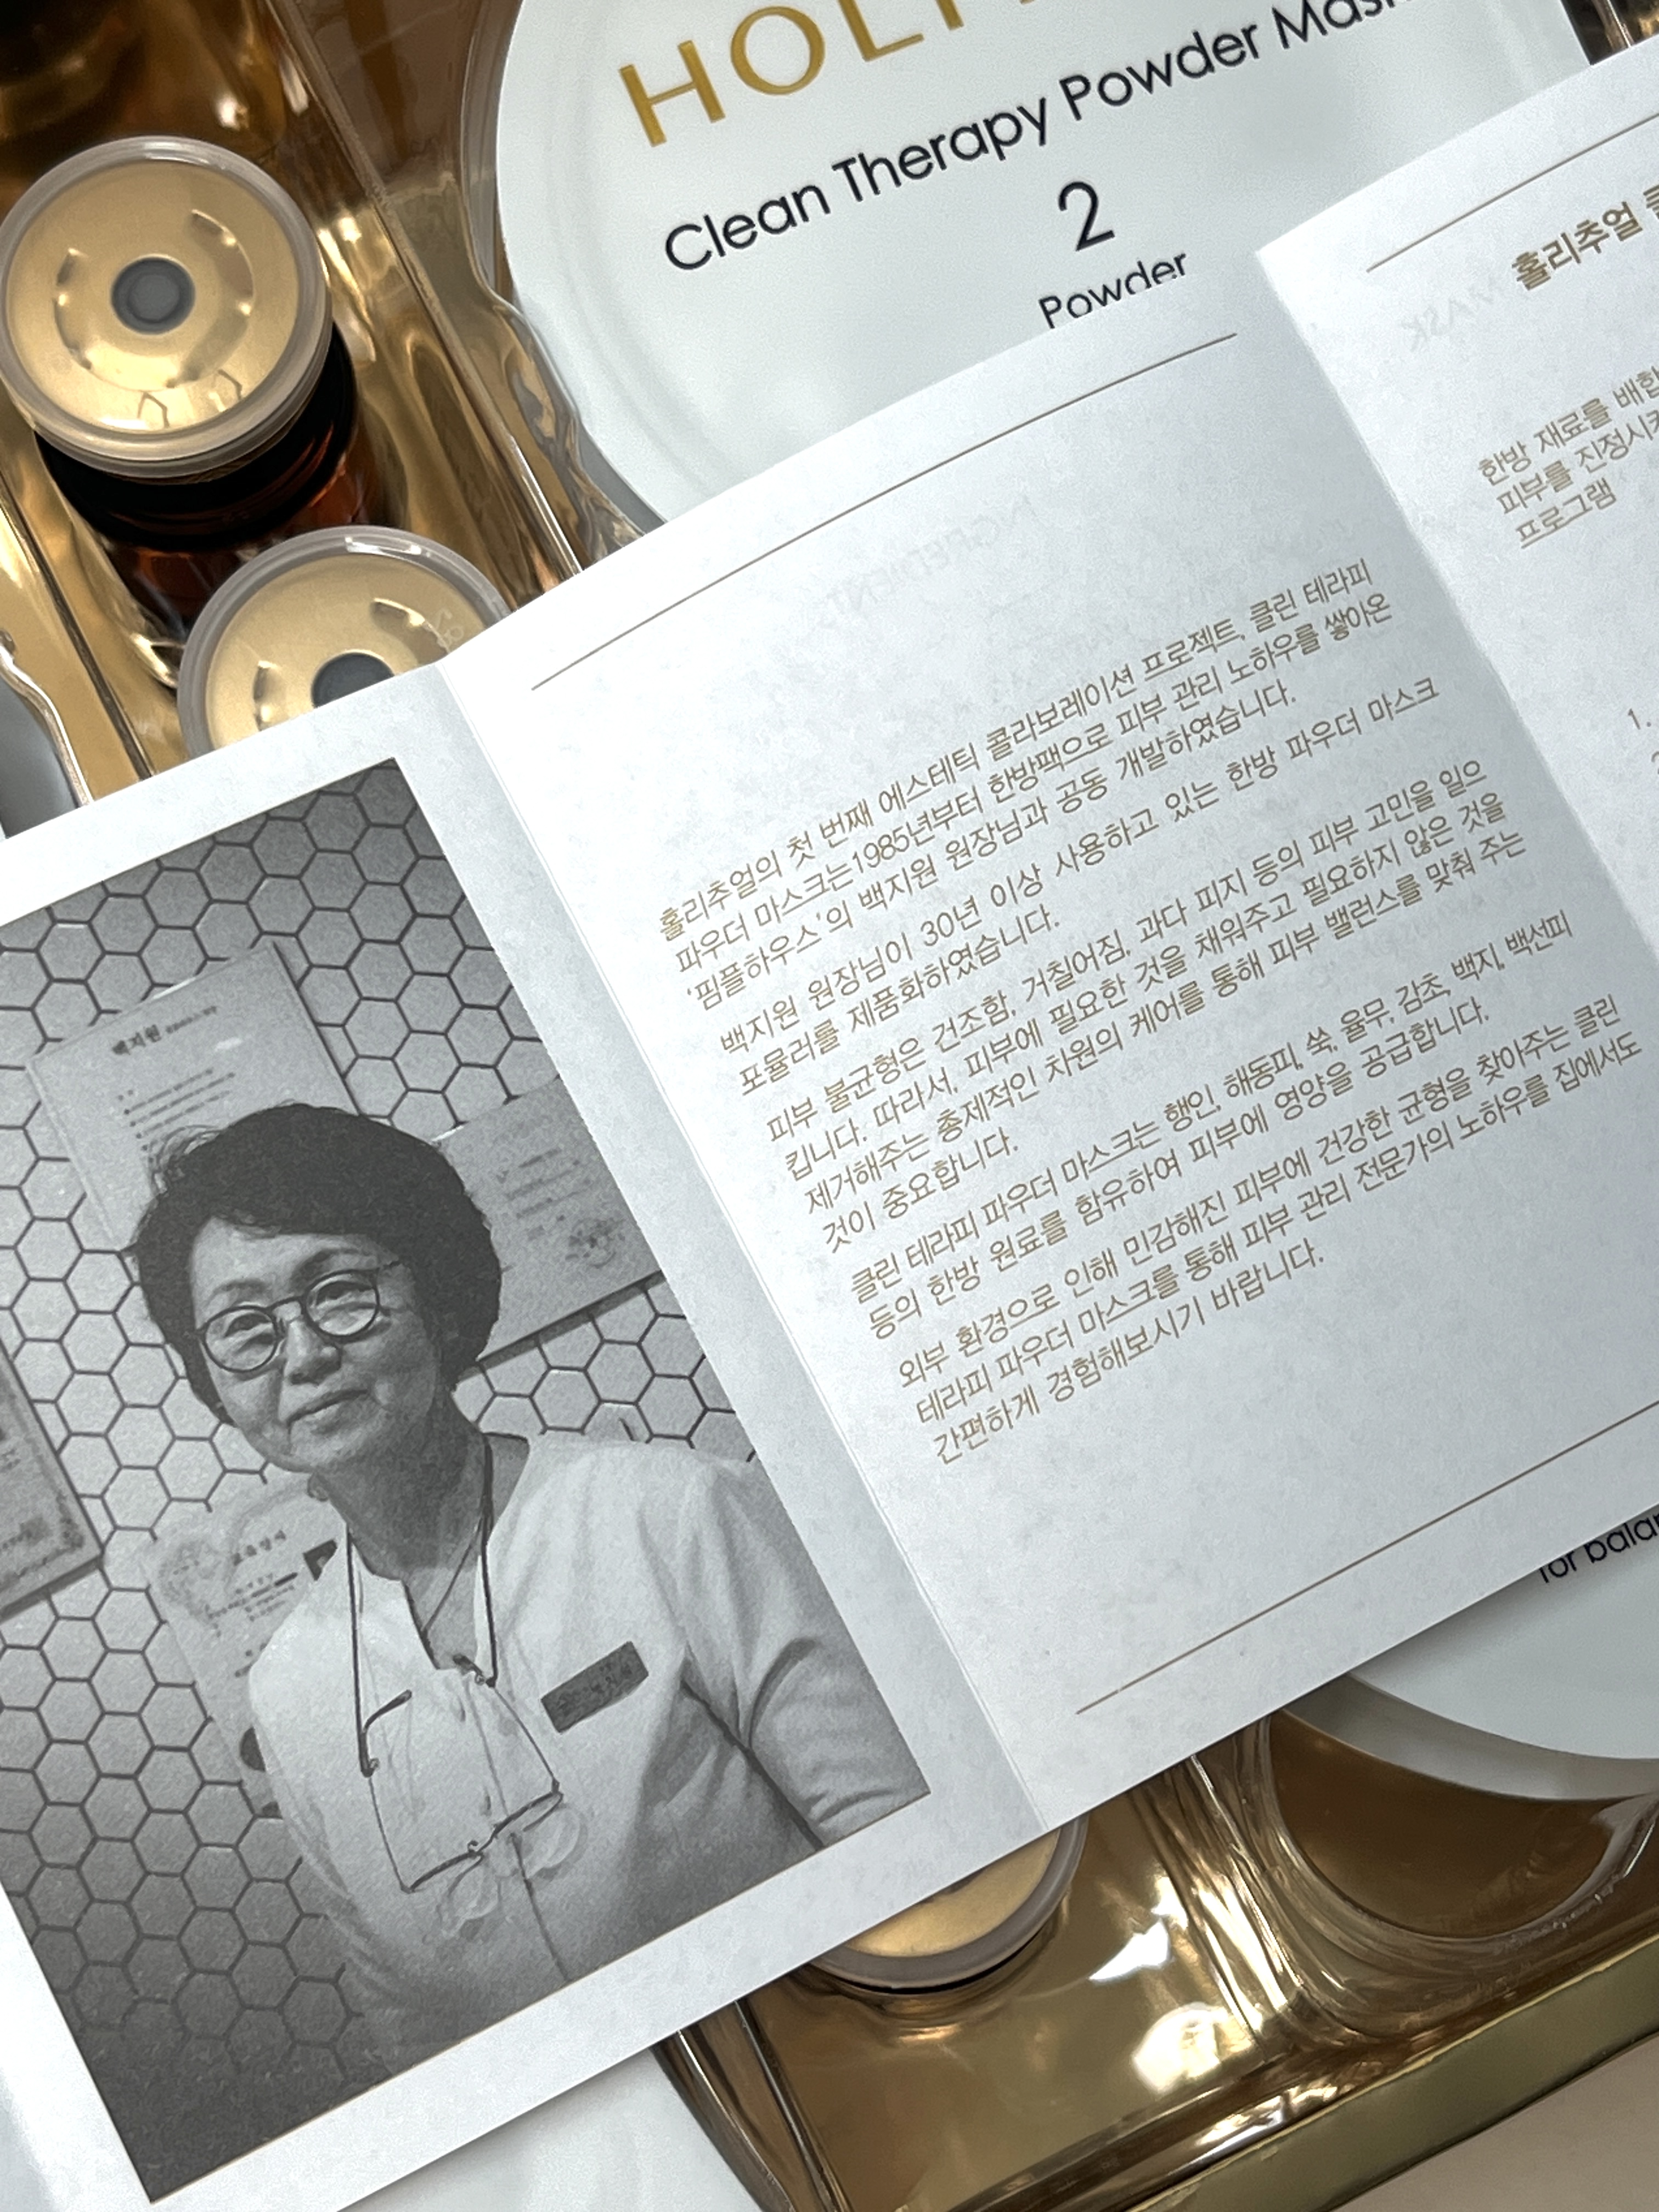 HOLI
Clean Therapy Powder Mask
2
Powder
홀리추얼의 첫 번째 에스테틱 콜라보레이션 프로젝트, 클린 테라피
파우더 마스크는1985년부터 한방팩으로 피부 관리 노하우를 쌓아온
‘핌플하우스’의 백지원 원장님과 공동 개발하였습니다.
백지원 원장님이 30년 이상 사용하고 있는 한방 파우더 마스크
포뮬러를 제품화하였습니다.
피부 불균형은 건조함, 거칠어짐, 과다 피지 등의 피부 고민을 일으
킵니다. 따라서, 피부에 필요한 것을 채워주고 필요하지 않은 것을
제거해주는 총제적인 차원의 케어를 통해 피부 밸런스를 맞춰 주는
것이 중요합니다.
클린 테라피 파우더 마스크는 행인, 해동피, 쑥, 율무, 감초, 백지, 백선피
등의 한방 원료를 함유하여 피부에 영양을 공급합니다.
외부 환경으로 인해 민감해진 피부에 건강한 균형을 찾아주는 클린
테라피 파우더 마스크를 통해 피부 관리 전문가의 노하우를 집에서도
간편하게 경험해보시기 바랍니다.
홀리추얼
한방 재료를 배합
피부를 진정시키
프로그램
1.
백지원
for balan